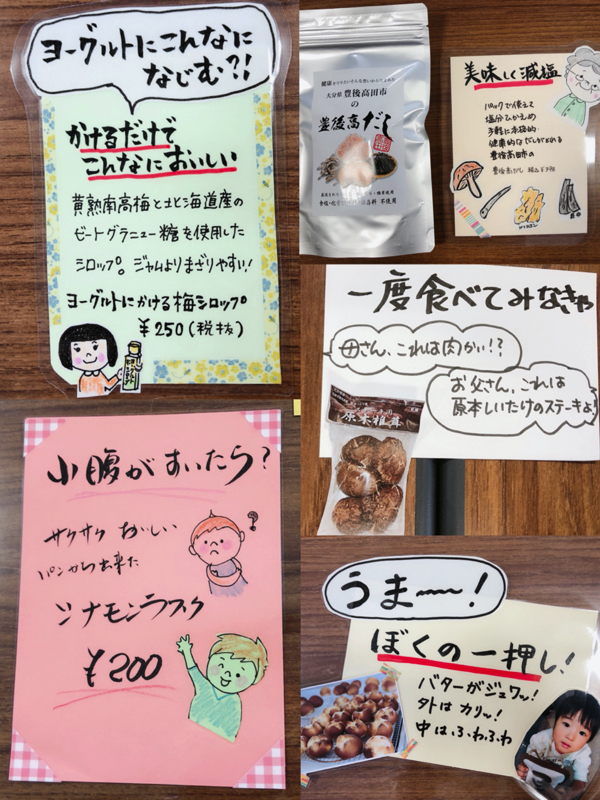 ヨーグルトにこんなに
なじむ?!
かけるだけで
こんなにおいしい
黄熟南高梅と北海道産の
ビートグラニュー糖を使用した
シロップ。ジャムよりまざりやすい!
ヨーグルトにかける梅シロップ
¥250(税抜)
大分県 豊後高田市
の
豊後高だし
不使用
美味しく減塩
パックで使えて
塩分ひかえめ
手軽に本格的
健康的なだしがとれる
豊後高田市の
一度食べてみなきゃ
母さん、これは肉かい!?
お父さん、これは
原本しいたけのステーキよ!
原木椎茸
小腹がすいたら?
サクサク おいしい
パンから出来た
シナモンラスク
¥200
うま〜!
ぼくの一押し!
バターがジュワッ!
外はカリッ!
中はふわふわ